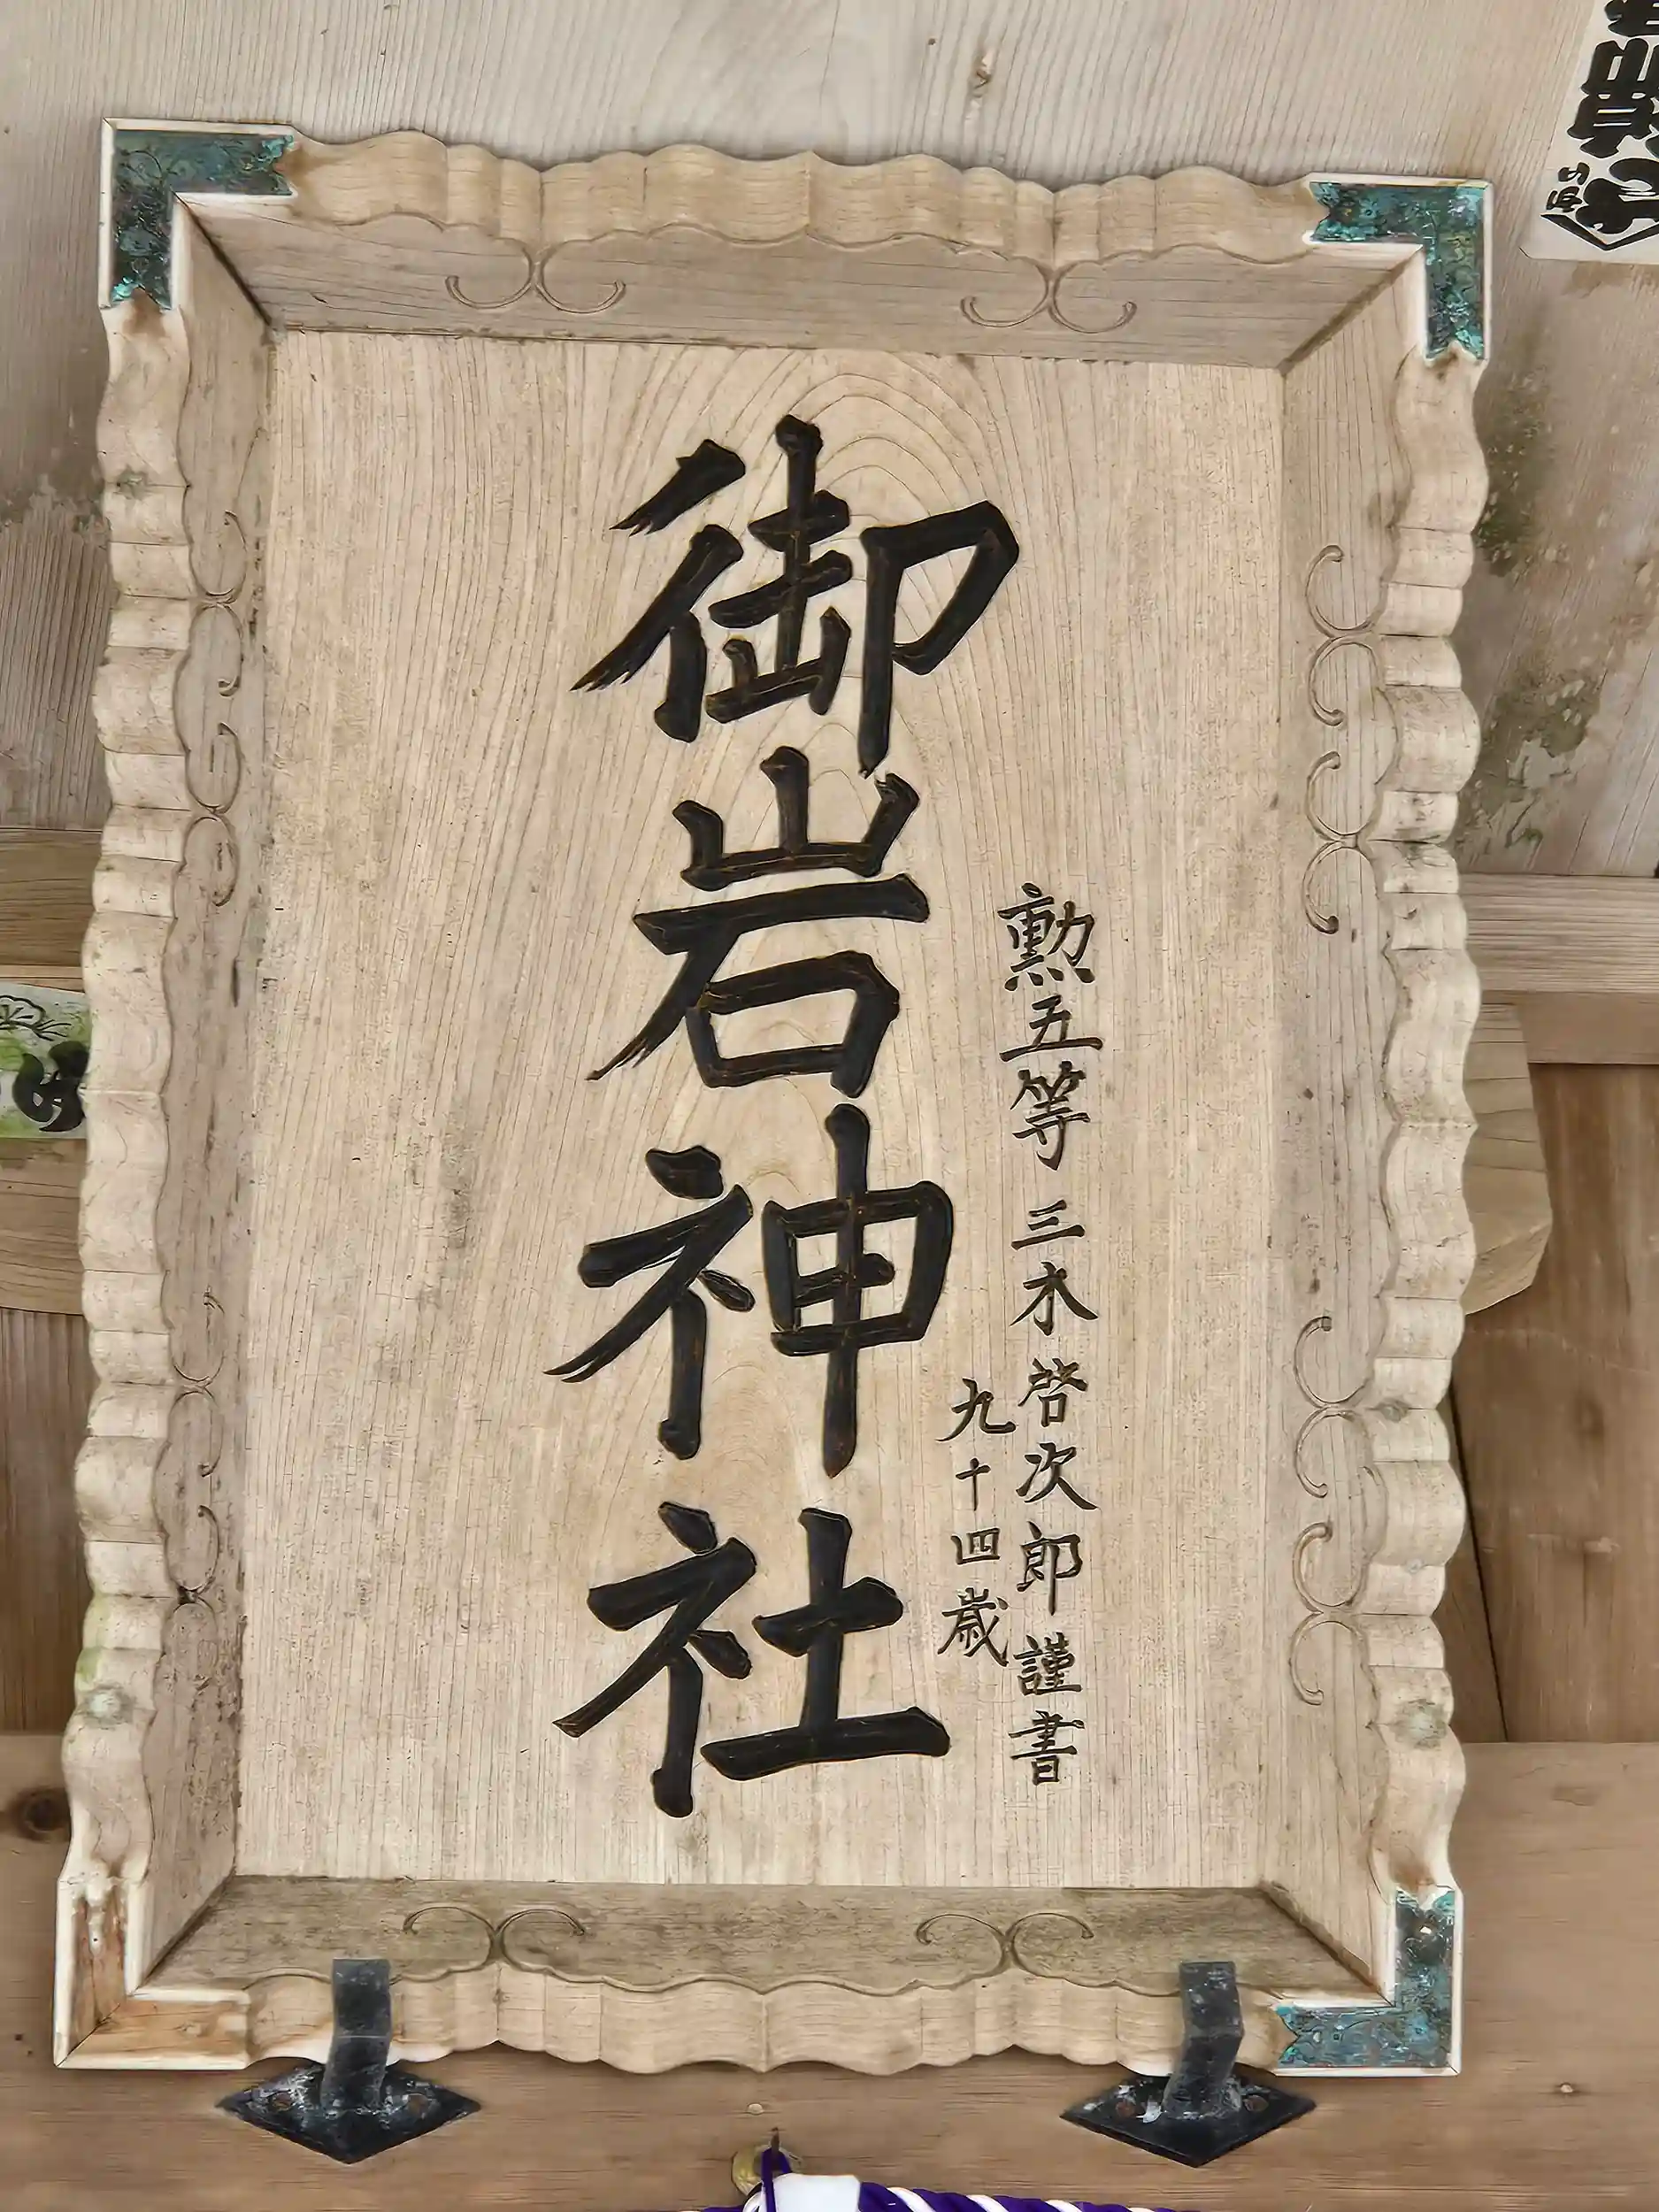 勲五等 三木啓次郎 謹書
九十四歳
御岩神社